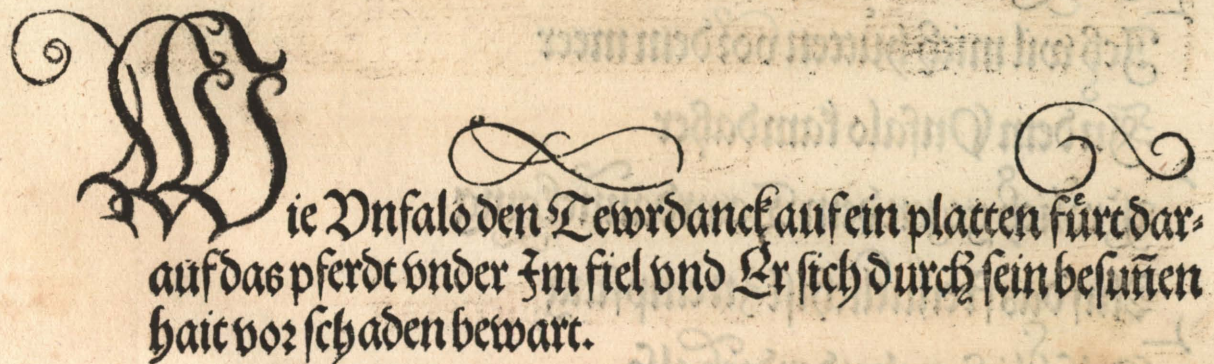 Wie Vnfalo den Tewrdanck auf ein platten fürt dar-
auf das pferdt vnder Im fiel vnd Er sich durch sein besun̄en
hait vor schaden bewart.